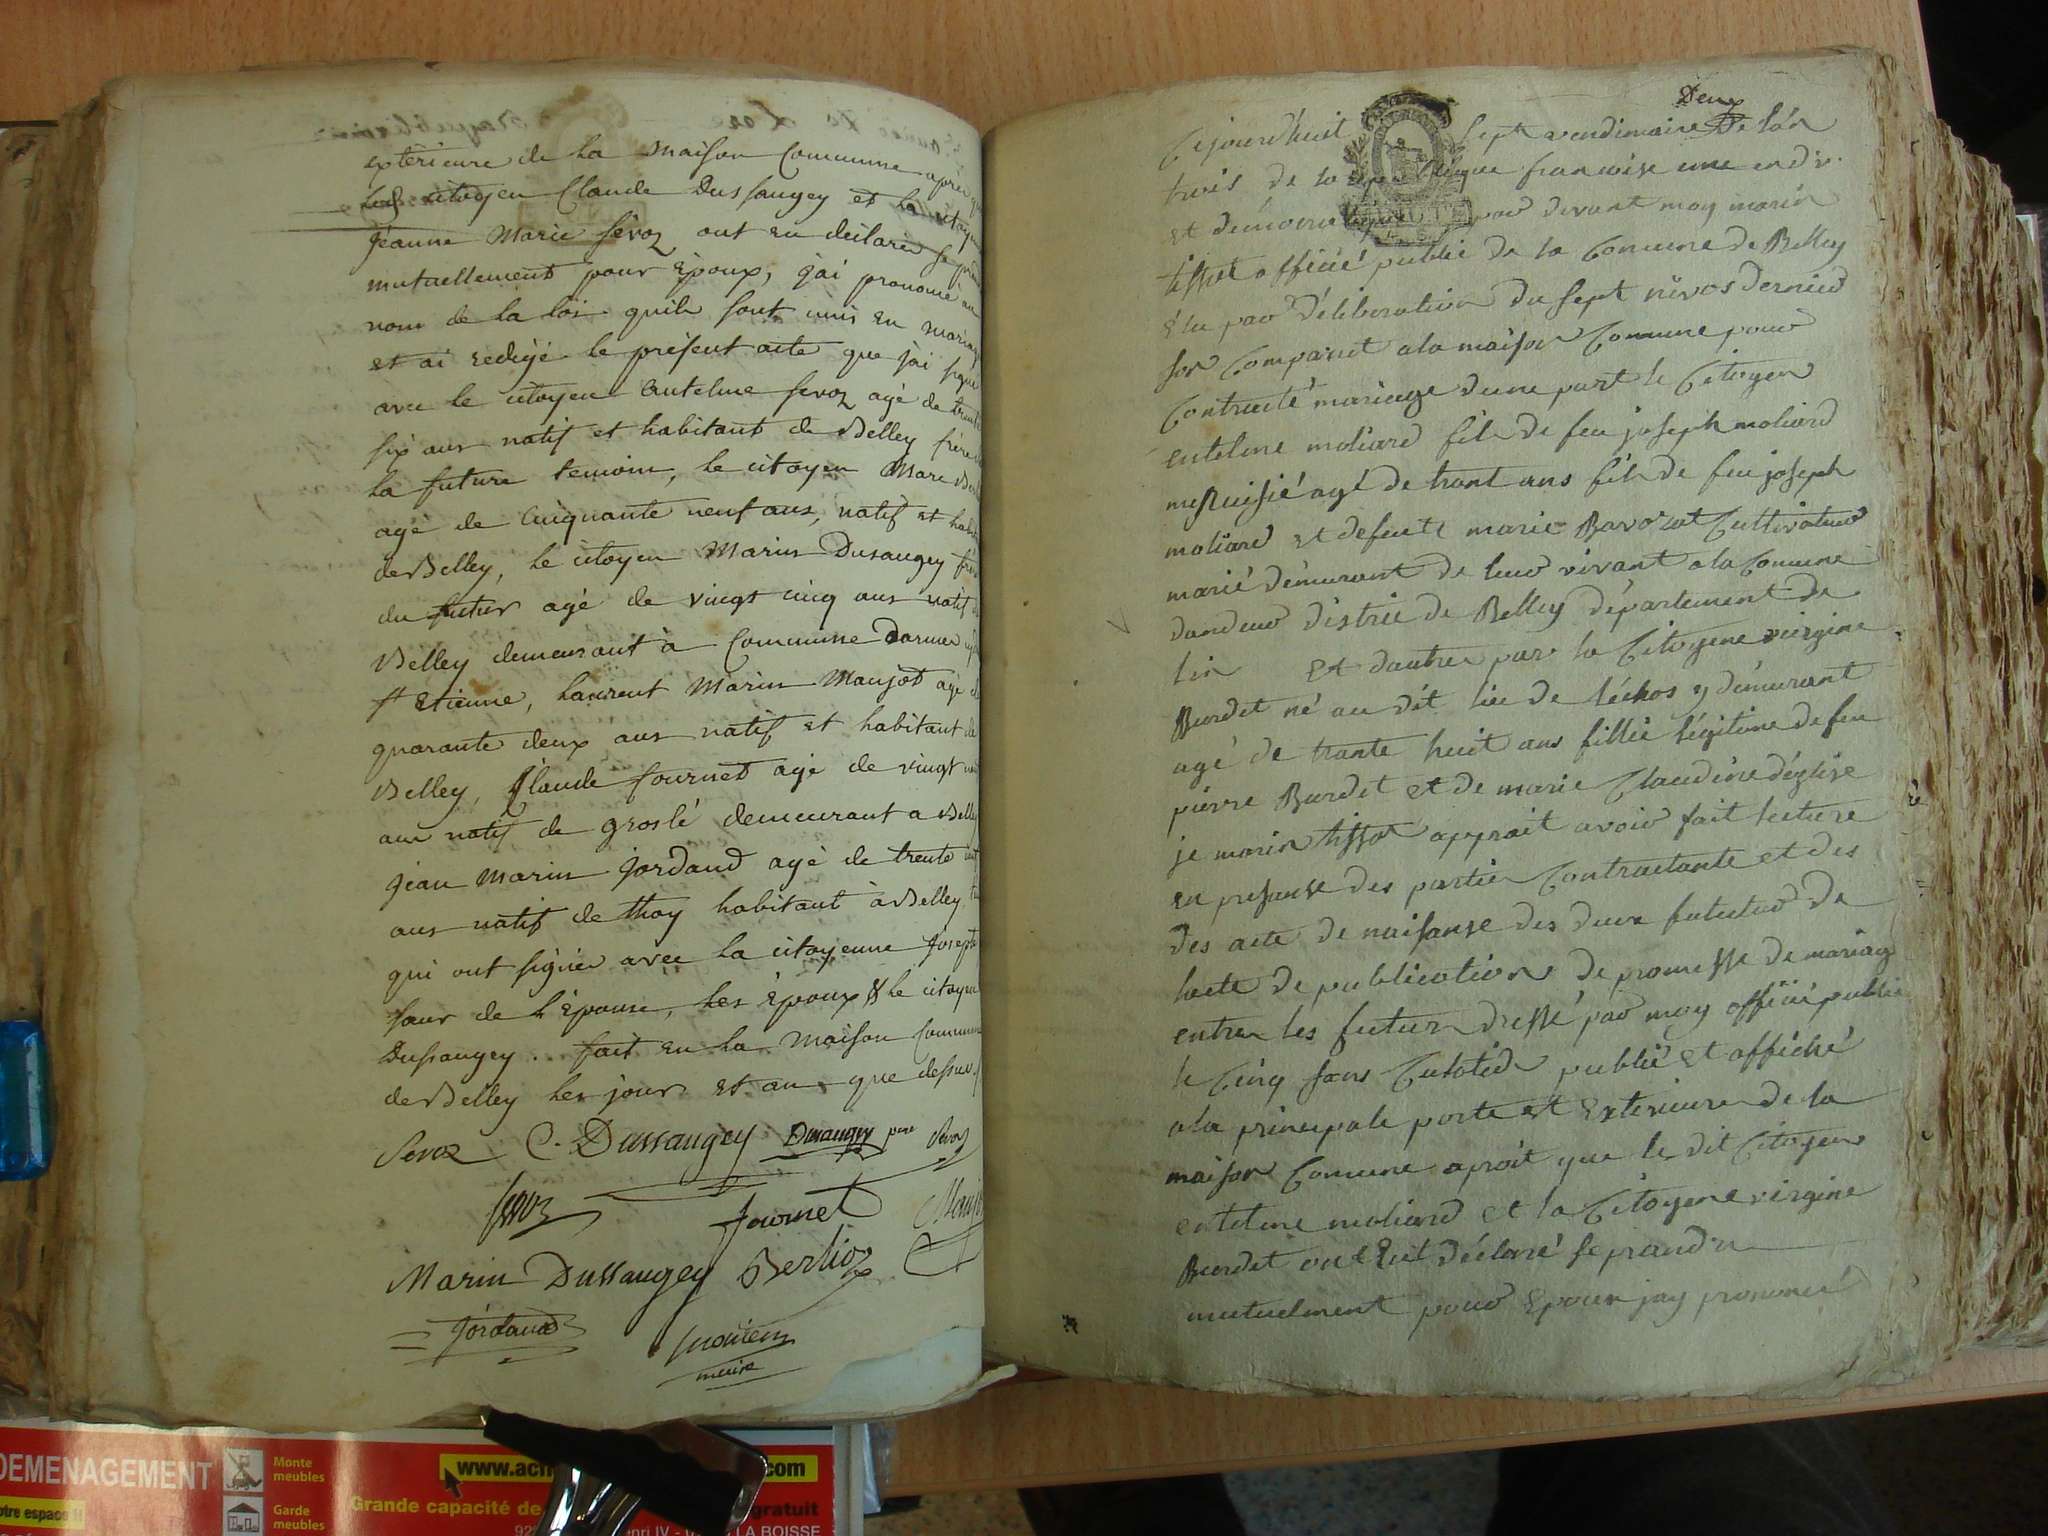 extérieure de la maison Commune après
les citoyen Claude Dussaugey et la
jéanne Marie sévoz ont eu déclaré se
mutuellement pour Epoux, j'ai prononcé au
nom de la loi quils sont unis en mariage
et ai redigé le présent acte que j'ai signé
avec le citoyen antelme sevoz agé de
six ans natif et habitant de Belley frère
la future temoin, le citoyen Marc
agé de cinquante neuf ans, natif et
de Belley, le citoyen Marin Dusaugey
du futur agé de vingt cinq ans natif
Belley demeurant à Commune Darmes
st Etienne, laurent Marin Maujot agé
quarante deux ans natif et habitant de
Belley, Claude fournet agé de vingt
ans natif de groslé demeurant a
jean marin jordand agé de trente
ans natif de thoy habitant à Belley
qui ont signés avec la citoyenne
sœur de l'Epouse, les Epoux & le citoyen
Dussaugey .. fait en la maison Commune
de Belley les jour et an que dessus
Sevoz C. Dussaugey Dusaugey pere
fournet
Marin Dussaugey Berlioz
Jordand
maire
Deux
Cejourd'huit sept vendimaire de lan
trois de la republique francoise une endi
et démocratique par devant moy marin
tissot officié public de la Comune de Belley
élu par déliberation du sept nivos dernier
son Comparut a la maison Comune pour
Contracté mariage dune part le Citoyen
entelme moliard fils de feu joseph moliard
menuisié agé de trant ans fils de feu joseph
moliard et defente marie Bavozat Cultivateur
marié démurant de leur vivant a la Comune
dandeur distric de Belley département de
lin et dautre par la Citoyene virgine
Burdet né au dit lieu de léchos y démurant
agé de trante huit ans fillie légitime de feu
pierre Burdet et de marie Claudine déglise
je marin tissot apprait avoir fait lecture
en presanse des partie Contractante et des
des acte de naisanse des deux fututur de
lacte de publication de promesse de mariag
entre les futur dressé par moy officié public
le Cinq sans Culotide publié et affiché
a la principale porte et exterieure de la
maison Comune aprôit que le dit Citoyen
entelme moliard et la Citoyene virgine
Burdet déclaré se prandre
mutuelment pour Epoux jay prononcé
DEMENAGEMENT
Monte
meubles
Garde
meubles
www.ach
com
Grande capacité de
gratuit
otre espace !!
enri IV
LA BOISSE